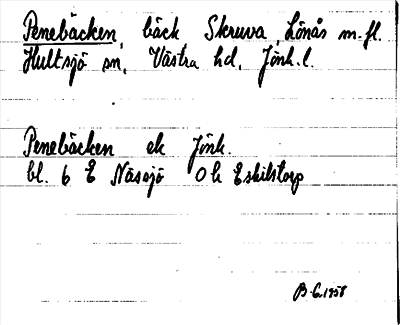 Penebäcken, bäck Skruva, Lönås m.fl.
Hultsjö sn, Västra hd, Jönk.l.
Penebäcken ek Jönk.
bl. 6 E Nässjö Oh Eskilstorp
B.G. 1958